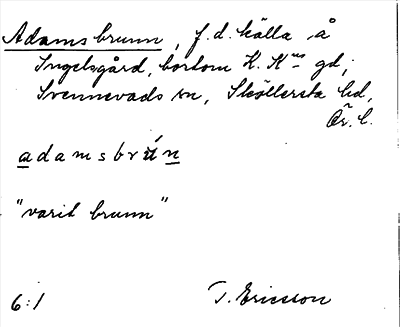 Adamsbrunn, f.d. källa å
Ingelsgård, bortom K. K:ns gd,
Svennevads sn, Sköllersta hd,
Ör. l.
adamsbrún
"varit brunn"
6:1 T. Ericsson